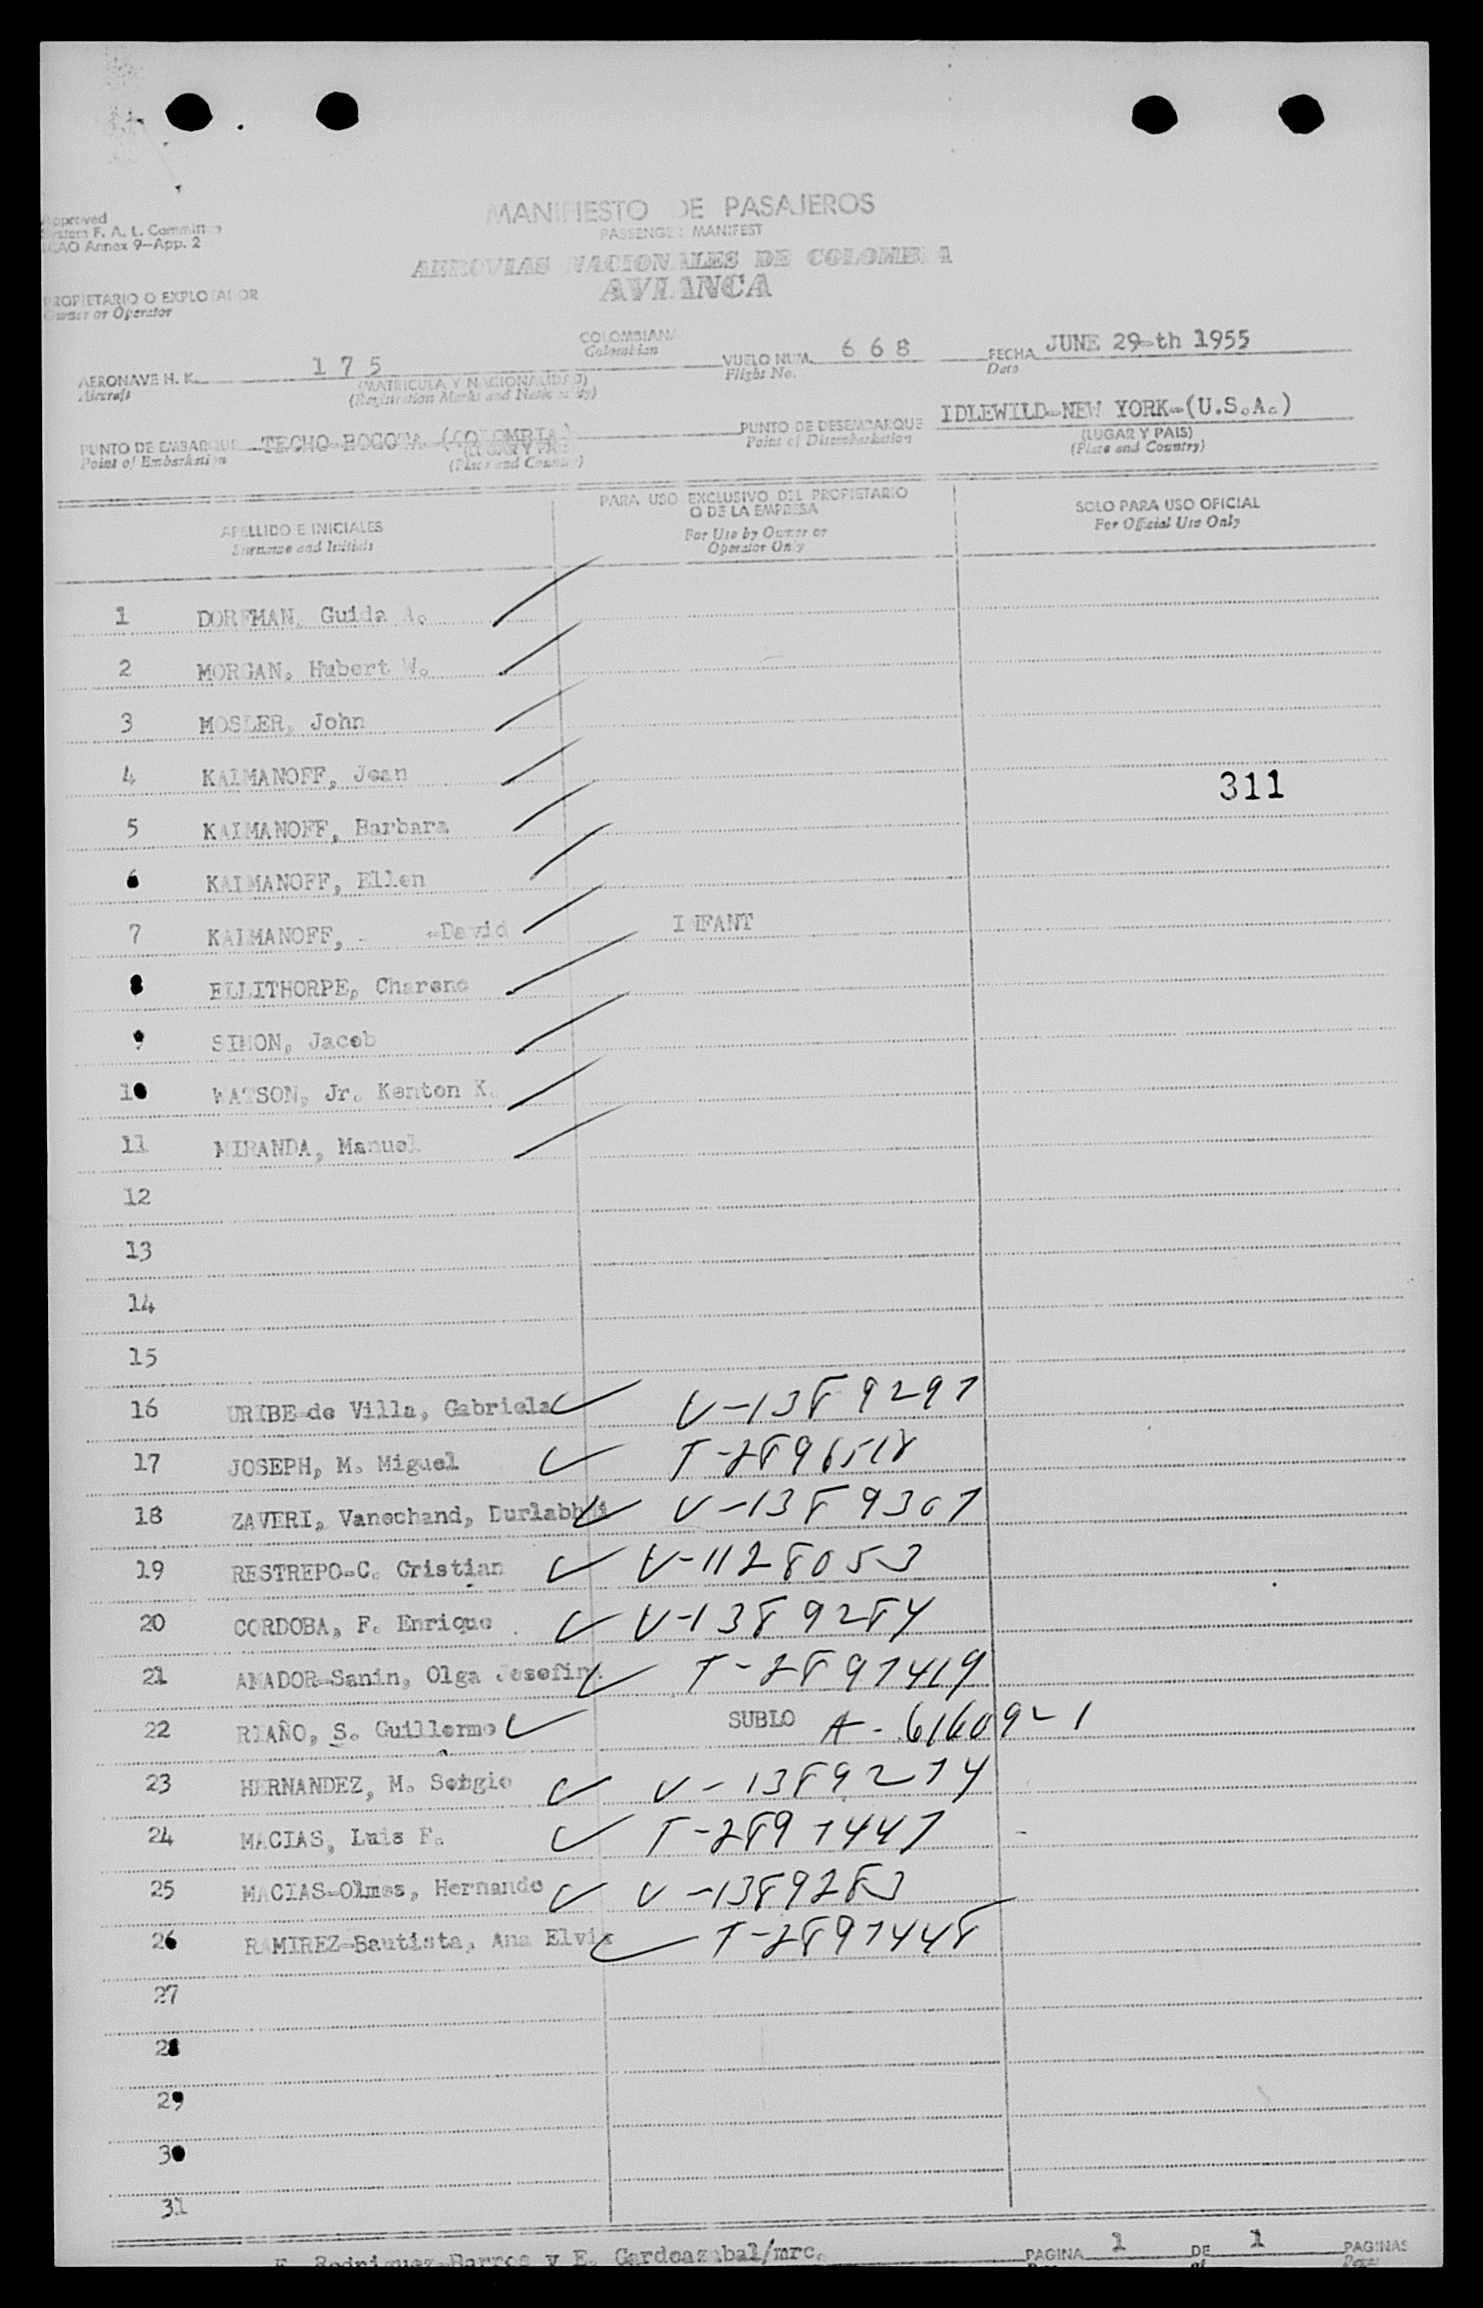 MANIFIESTO DE PASAJEROS
PASSENGER MANIFEST
Approved
System F. A. L. Committee
ICAO Annex 9-App. 2
AEROVIAS NACIONALES DE COLOMBIA
AVIANCA
PROPIETARIO O EXPLOTADOR
Owner or Operator
AERONAVE H. K. 175 COLOMBIANA VUELO NUM. 668 FECHA JUNE 29-th 1955
Aircraft Colombian Flight No. Date
(MATRICULA Y NACIONALIDAD)
(Registration Marks and Nationality)
PUNTO DE EMBARQUE TECHO-BOGOTA (COLOMBIA) PUNTO DE DESEMBARQUE IDLEWILD-NEW YORK-(U.S.A.)
Point of Embarkation (LUGAR Y PAIS) Point of Disembarkation (LUGAR Y PAIS)
(Place and Country) (Place and Country)
APELLIDO E INICIALES PARA USO EXCLUSIVO DEL PROPIETARIO O DE LA EMPRESA SOLO PARA USO OFICIAL
Surname and Initials For Use by Owner or Operator Only For Official Use Only
1 DORFMAN, Guida A.
2 MORGAN, Hubert W.
3 MOSLER, John
4 KAIMANOFF, Jean
311
5 KAIMANOFF, Barbara
6 KAIMANOFF, Ellen
7 KAIMANOFF, - -David INFANT
8 ELLITHORPE, Charene
9 SIMON, Jacob
10 WATSON, Jr. Kenton K.
11 MIRANDA, Manuel
12
13
14
15
16 URIBE-de Villa, Gabriela V-1389297
17 JOSEPH, M. Miguel T-2896518
18 ZAVERI, Vanechand, Durlabhji V-1389307
19 RESTREPO-C. Cristian V-1128053
20 CORDOBA, F. Enrique V-1389284
21 AMADOR-Sanin, Olga Josefina T-2897419
22 RIAÑO, S. Guillermo SUBLO A-6160921
23 HERNANDEZ, M. Sergio V-1389274
24 MACIAS, Luis F. T-2897447
25 MACIAS-Olmes, Hernando V-1389283
26 RAMIREZ-Bautista, Ana Elvia T-2897448
27
28
29
30
31
E. Rodriguez-Barros y E. Gardeazabal/mrc. PAGINA 1 DE 1 PAGINAS